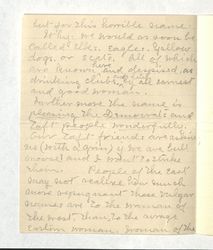 but for this horrible name.
Why we would as soon be
called Elks, Eagles, Yellow
dogs, or scots, all of which
here
are known and despised, as
drinking clubs, by all earnest
and good women.
Further more the name is
pleasing the Democrats and
Taft people wonderfully.
Our Taft friends are asking
us (with a grin) if we are bull
moose! and I want to strike
them. People of the East
may not realize how much
more repugnant these vulgar
names are to the woman of
the west, than to the average
Eastern woman, woman of the